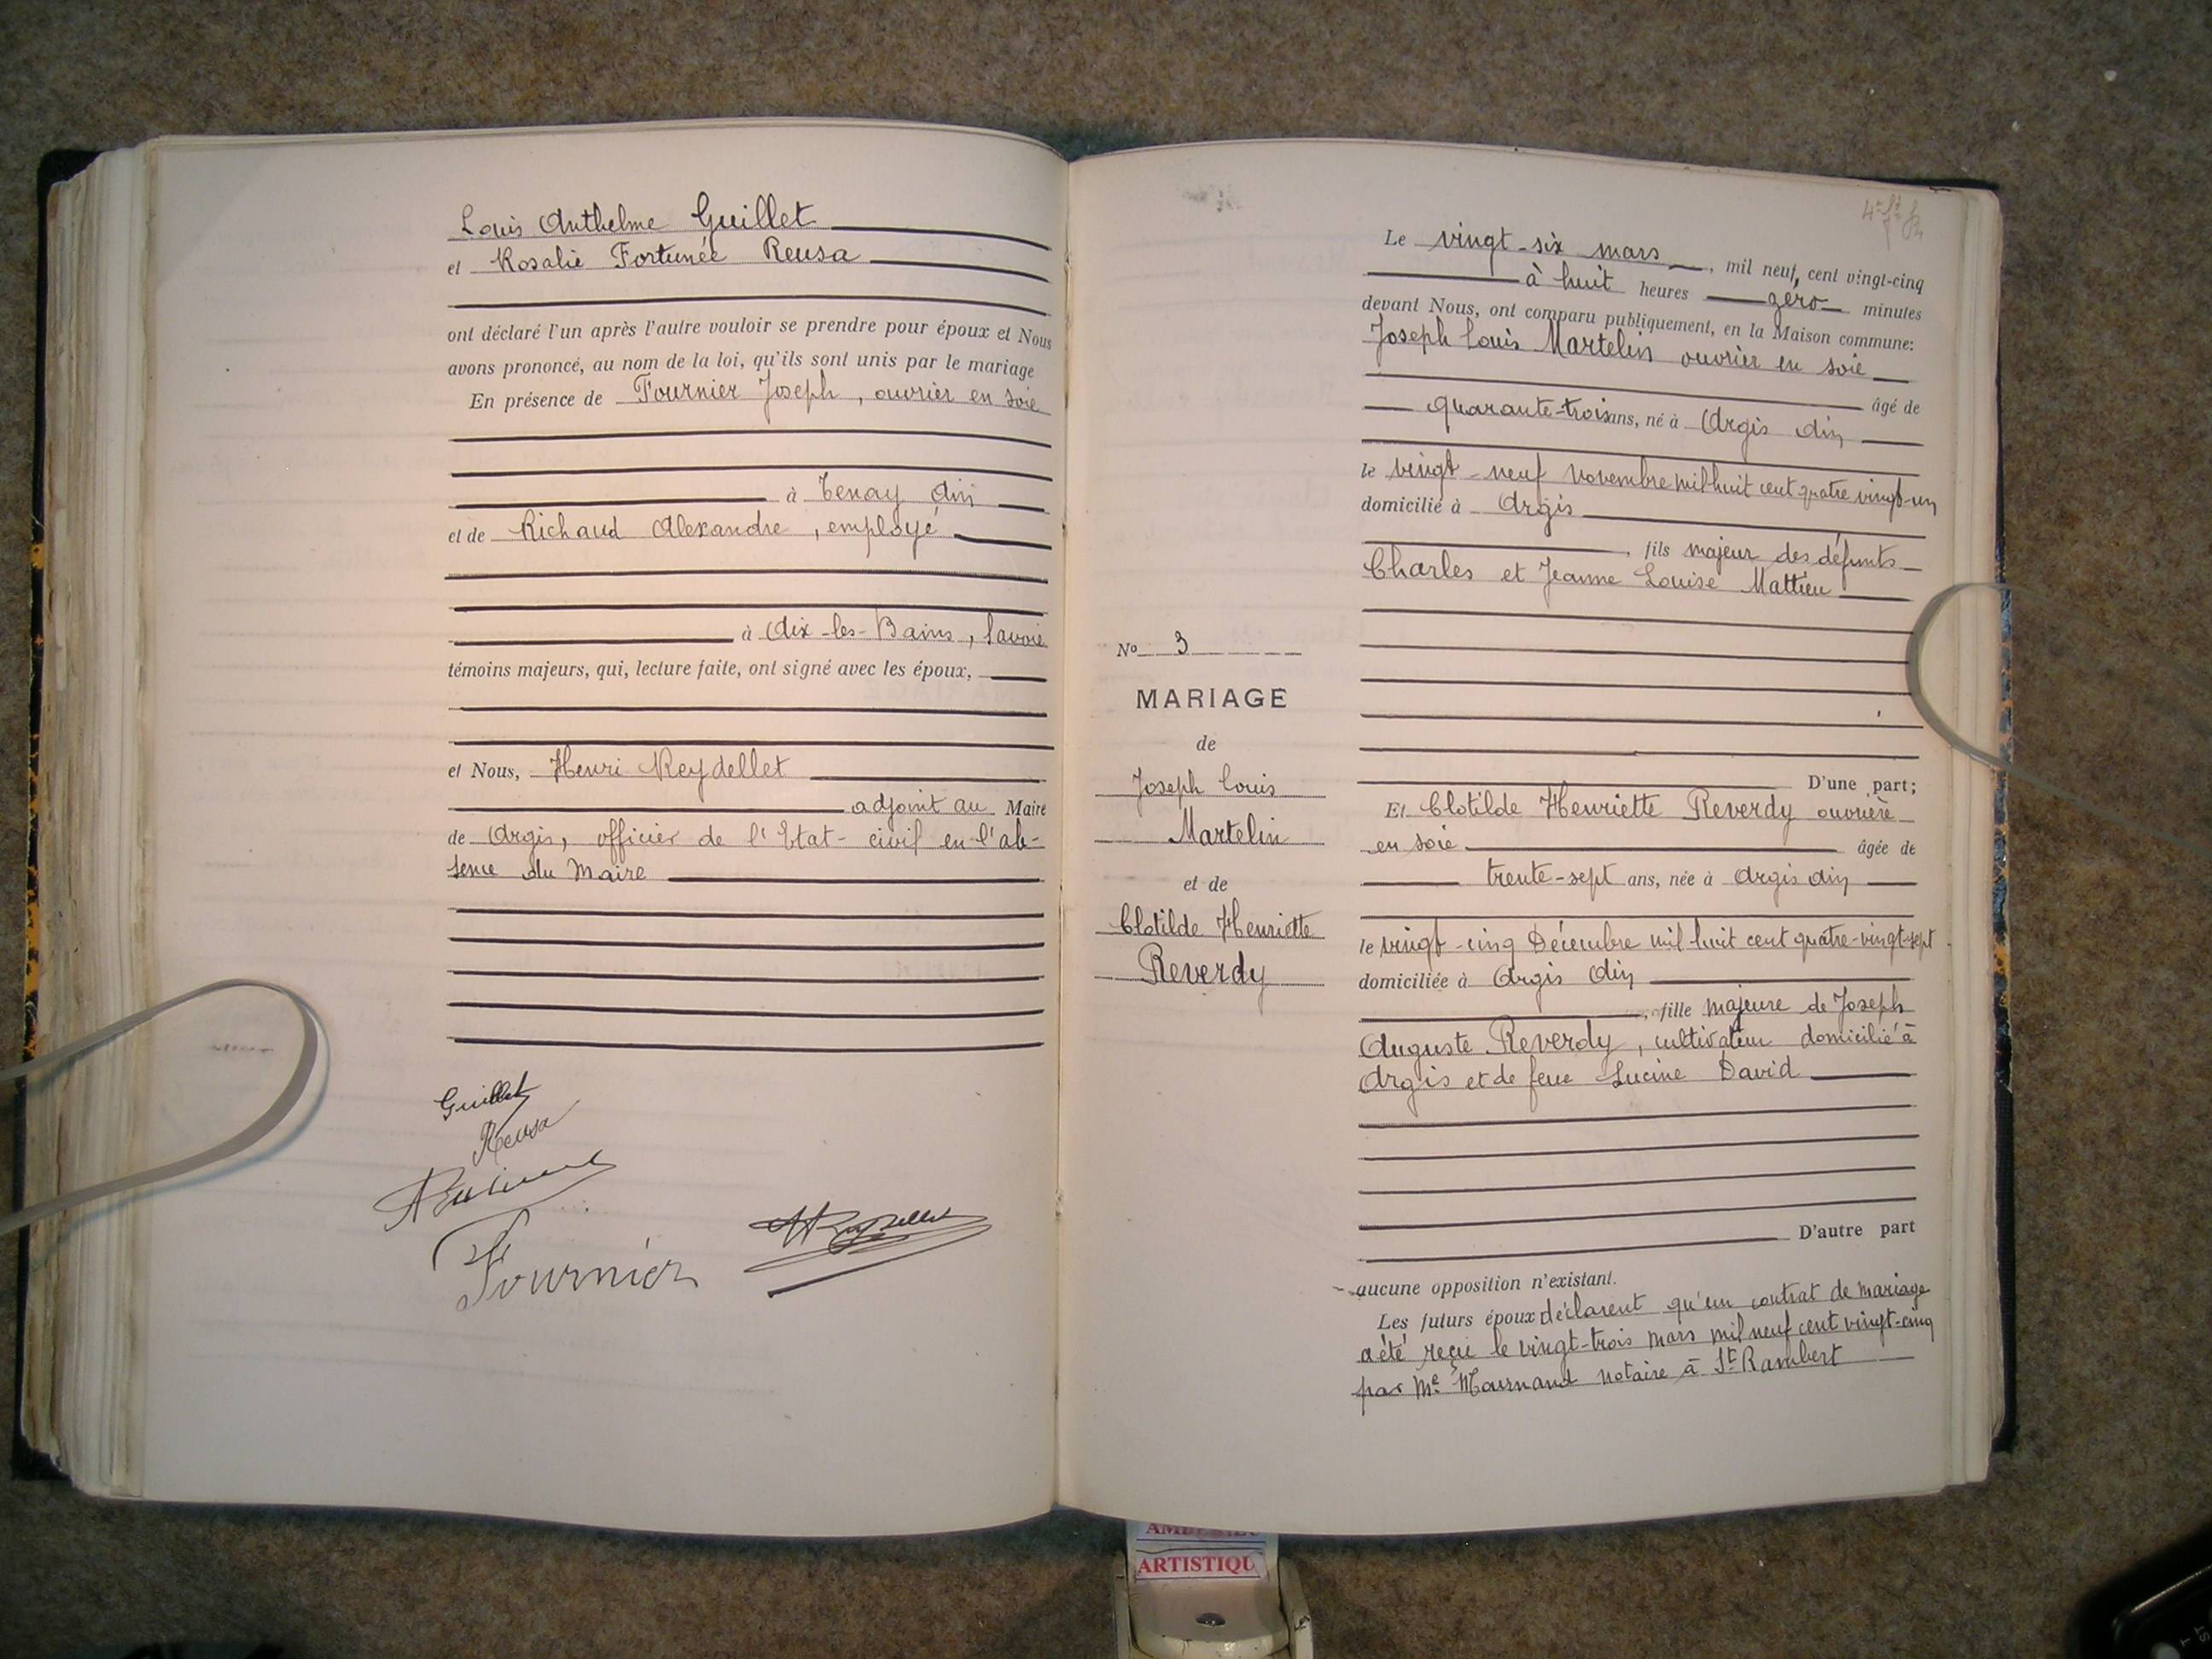 Louis Anthelme Guillet
et Rosalie Fortunée Reusa
ont déclaré l'un après l'autre vouloir se prendre pour époux et Nous
avons prononcé, au nom de la loi, qu'ils sont unis par le mariage
En présence de Fournier Joseph, ouvrier en soie
à Tenay Ain
et de Richaud Alexandre, employé
à Aix-les-Bains, Savoie
témoins majeurs, qui, lecture faite, ont signé avec les époux,
et Nous, Henri Reydellet
adjoint au Maire
de Argis, officier de l'Etat-civil en l'ab-
sence du Maire
Guillet
Reusa
Fournier
Le vingt-six mars, mil neuf cent vingt-cinq
à huit heures zéro minutes
devant Nous, ont comparu publiquement, en la Maison commune:
Joseph Louis Martelin ouvrier en soie
âgé de
quarante-trois ans, né à Argis Ain
le vingt-neuf novembre mil huit cent quatre vingt-un
domicilié à Argis
, fils majeur des défunts
Charles et Jeanne Louise Mattieu
No 3
MARIAGE
de
Joseph Louis
Martelin
et de
Clotilde Henriette
Reverdy
D'une part;
Et Clotilde Henriette Reverdy ouvrière
en soie âgée de
trente-sept ans, née à Argis Ain
le vingt-cinq Décembre mil huit cent quatre-vingt-sept
domiciliée à Argis Ain
, fille majeure de Joseph
Auguste Reverdy, cultivateur domicilié à
Argis et de feue Lucine David
D'autre part
aucune opposition n'existant.
Les futurs époux déclarent qu'un contrat de mariage
a été reçu le vingt-trois mars mil neuf cent vingt-cinq
par Me notaire à St Rambert
ARTISTIQU